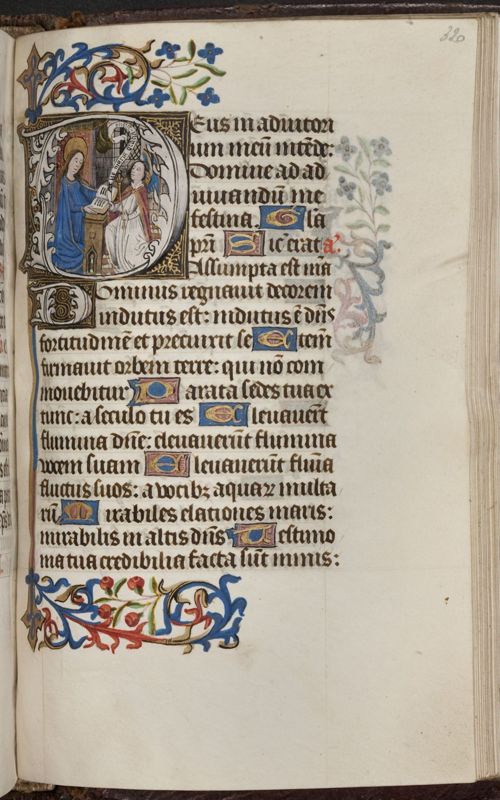 320
Deus in adiutori
um meū intēde:
Domine ad ad
iuuandū me
festina. Gla
pr̄i Sic̄ erat a͛.
Assumpta est m̄a
Dominus regnauit decorem
indutus est: indutus ē dn̄s
fortitudinē et precinxit se Etem
firmauit orbem terre: qui nō com
mouebitur Parata sedes tua ex
tunc: a seculo tu es Eleuauer̄t
flumina dn̄e: eleuauerūt flumina
vocem suam Eleuauerūt flum̄a
fluctus suos: a vocibꝫ aquaꝝ multa
rū Mirabiles elationes maris:
mirabilis in altis dn̄s Testimo
nia tua credibilia facta sūt nimis: